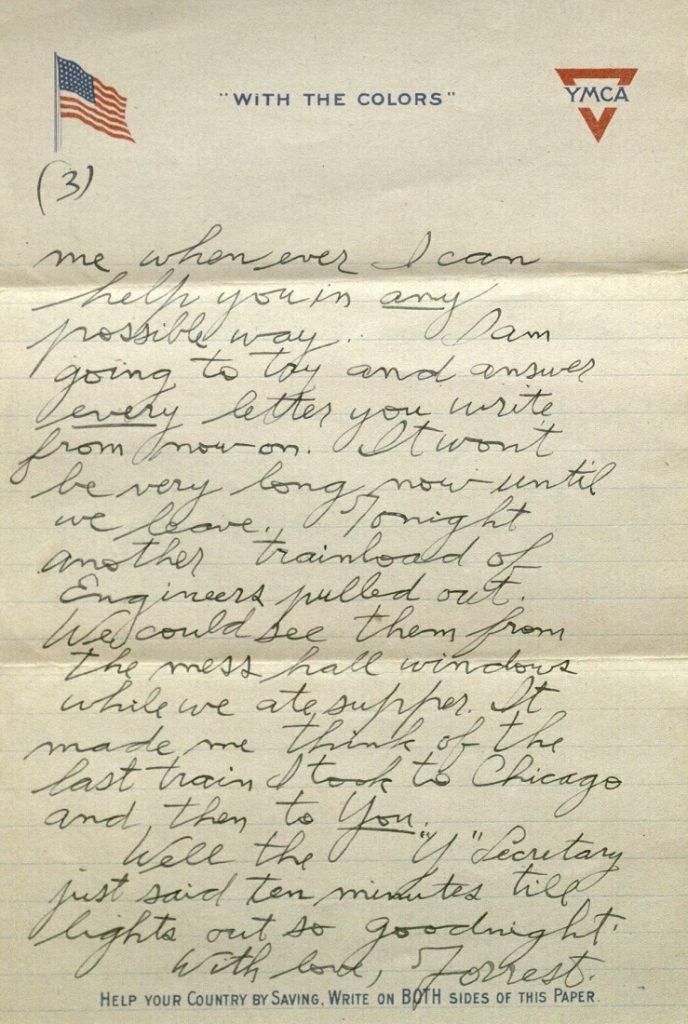 "WITH THE COLORS"
YMCA
(3)
me when ever I can
help you in any
possible way. I am
going to try and answer
every letter you write
from now on. It won't
be very long now until
we leave. Tonight
another trainload of
Engineers pulled out.
We could see them from
the mess hall windows
while we ate supper. It
made me think of the
last train I took to Chicago
and then to You.
Well the "Y" Secretary
just said ten minutes till
lights out so goodnight.
With love, Forrest.
HELP YOUR COUNTRY BY SAVING. WRITE ON BOTH SIDES OF THIS PAPER.